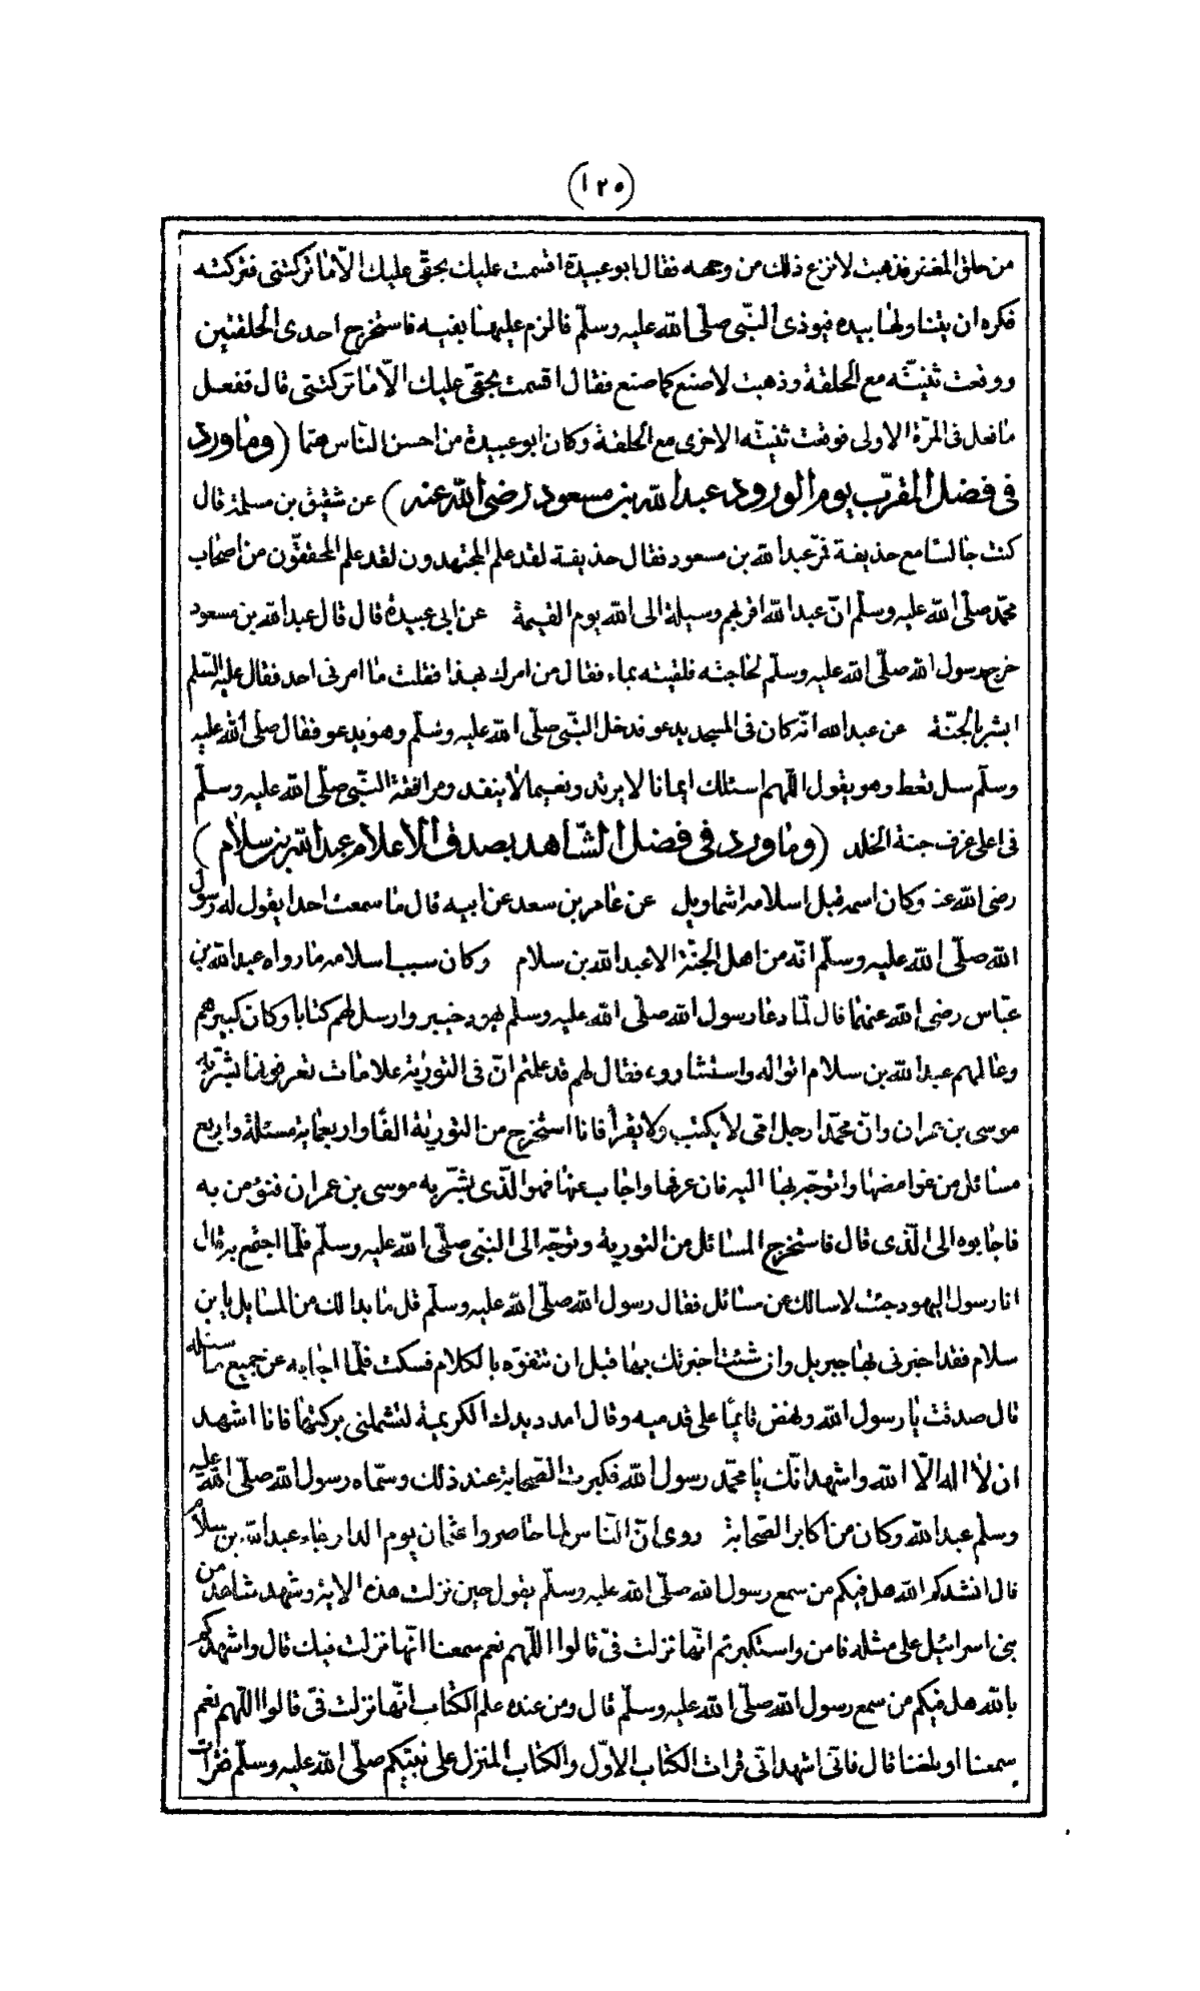 (١٢٥)
من حلق المغفر فذهبت لانزع ذلك من وجهه فقال ابو عبيدة اقسمت عليك بحقّى عليك الّا ما تركتنى فتركته
فكره ان يتناولها بيده فيوذى النّبى صلّى الله عليه وسلّم فالزم عليهما بفيه فاستخرج احدى الحلقتين
ووقعت ثنيّته مع الحلقة وذهبت لاصنع كما صنع فقال اقسمت بحقّى عليك الّا ما تركتنى قال ففعل
ما فعل فى المرّة الاولى فوقعت ثنيّته الاخرى مع الحلقة وكان ابو عبيدة من احسن النّاس هتما (وما ورد
فى فضل المقرّب يوم الورود عبد الله بن مسعود رضى الله عنه) عن شقيق بن مسلمة قال
كنت جالسا مع حذيفة فمرّ عبد الله بن مسعود فقال حذيفة لقد علم المجتهدون لقد علم المحققّون من اصحاب
محمّد صلّى الله عليه وسلّم انّ عبد الله اقربهم وسيلة الى الله يوم القيمة عن ابى عبيدة قال قال عبد الله بن مسعود
خرج رسول الله صلّى الله عليه وسلّم لحاجته فلقيته بماء فقال من امرك بهذا فقلت ما امرنى احد فقال عليه السّلم
ابشر بالجنّة عن عبد الله انّه كان فى المسجد يدعو فدخل النّبى صلّى الله عليه وسلّم وهو يدعو فقال صلّى الله عليه
وسلّم سل تعط وهو يقول اللّهم اسئلك ايمانا لا يرتد ونعيما لا ينفد ومرافقة النّبى صلّى الله عليه وسلّم
فى اعلى غرف جنة الخلد (وما ورد فى فضل الشّاهد بصدق الاعلام عبد الله بن سلام)
رضى الله عنه وكان اسمه قبل اسلامه اشماويل عن عامر بن سعد عن ابيه قال ما سمعت احدا يقول له رسول
الله صلّى الله عليه وسلّم انّه من اهل الجنّة الا عبد الله بن سلام وكان سبب اسلامه ما رواه عبد الله بن
عبّاس رضى الله عنهما قال لمّا دعا رسول الله صلّى الله عليه وسلّم يهود خيبر وارسل لهم كتابا وكان كبيرهم
وعالمهم عبد الله بن سلام اتوا له واستشاروه فقال لهم قد علمتم انّ فى التورية علامات تعرفونها بشّر به
موسى بن عمران وانّ محمّدا رجل امّى لا يكتب ولا يقرأ فانا استخرج من التورية الفا واربعماية مسئلة واربع
مسائل من غوامضها واتوجّه بها اليه فان عرفها واجاب عنها فهو الّذى بشّر به موسى بن عمران فنؤمن به
فاجابوه الى الّذى قال فاستخرج المسائل من التورية وتوجّه الى النّبى صلّى الله عليه وسلّم فلمّا اجتمع به قال
انا رسول اليهود جئت لاسالك عن مسائل فقال رسول الله صلّى الله عليه وسلّم قل ما بدالك من المسايل يا بن
سلام فقد اخبرنى بها جبريل وان شئت اخبرتك بها قبل ان تتفوّه بالكلام فسكت فلمّا اجابه عن جميع مسائله
قال صدقت يا رسول الله ونهض قايما على قدميه وقال امدد يدك الكريمة لتشملنى بركتها فانا اشهد
ان لا اله الّا الله واشهد انّك يا محمّد رسول الله فكبرت الصّحابة عند ذلك وسمّاه رسول الله صلّى الله عليه
وسلّم عبد الله وكان من اكابر الصّحابة روى انّ النّاس لما حاصروا عثمان يوم الدار جاء عبد الله بن سلام
قال انشدكم الله هل فيكم من سمع رسول الله صلّى الله عليه وسلّم يقول حين نزلت هذه الاية وشهد شاهد من
بنى اسرائيل على مثله فامن واستكبرتم انّها نزلت فىّ قالوا اللّهم نعم سمعنا انّها نزلت فيك قال واشهدكم
بالله هل فيكم من سمع رسول الله صلّى الله عليه وسلّم قال ومن عنده علم الكتاب انّها نزلت فىّ قالوا اللّهم نعم
سمعنا او بلغنا قال فانّى اشهد انّى قرات الكتاب الاوّل والكتاب المنزل على نبيّكم صلّى الله عليه وسلّم فقرات